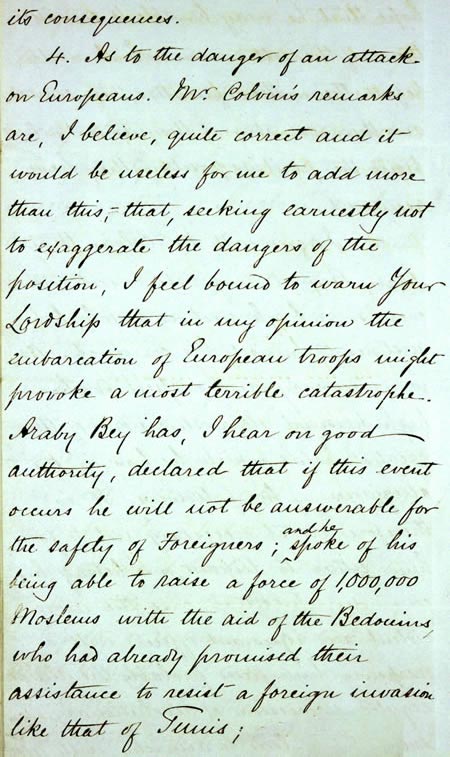 its consequences.
4. As to the danger of an attack
on Europeans. Mr. Colvin's remarks
are, I believe, quite correct and it
would be useless for me to add more
than this,- that, seeking earnestly not
to exaggerate the dangers of the
position, I feel bound to warn Your
Lordship that in my opinion the
embarcation of European troops might
provoke a most terrible catastrophe.
Araby Bey has, I hear on good
authority, declared that if this event
occurs he will not be answerable for
the safety of Foreigners; and he spoke of his
being able to raise a force of 1,000,000
Moslems with the aid of the Bedouins,
who had already promised their
assistance to resist a foreign invasion
like that of Tunis;